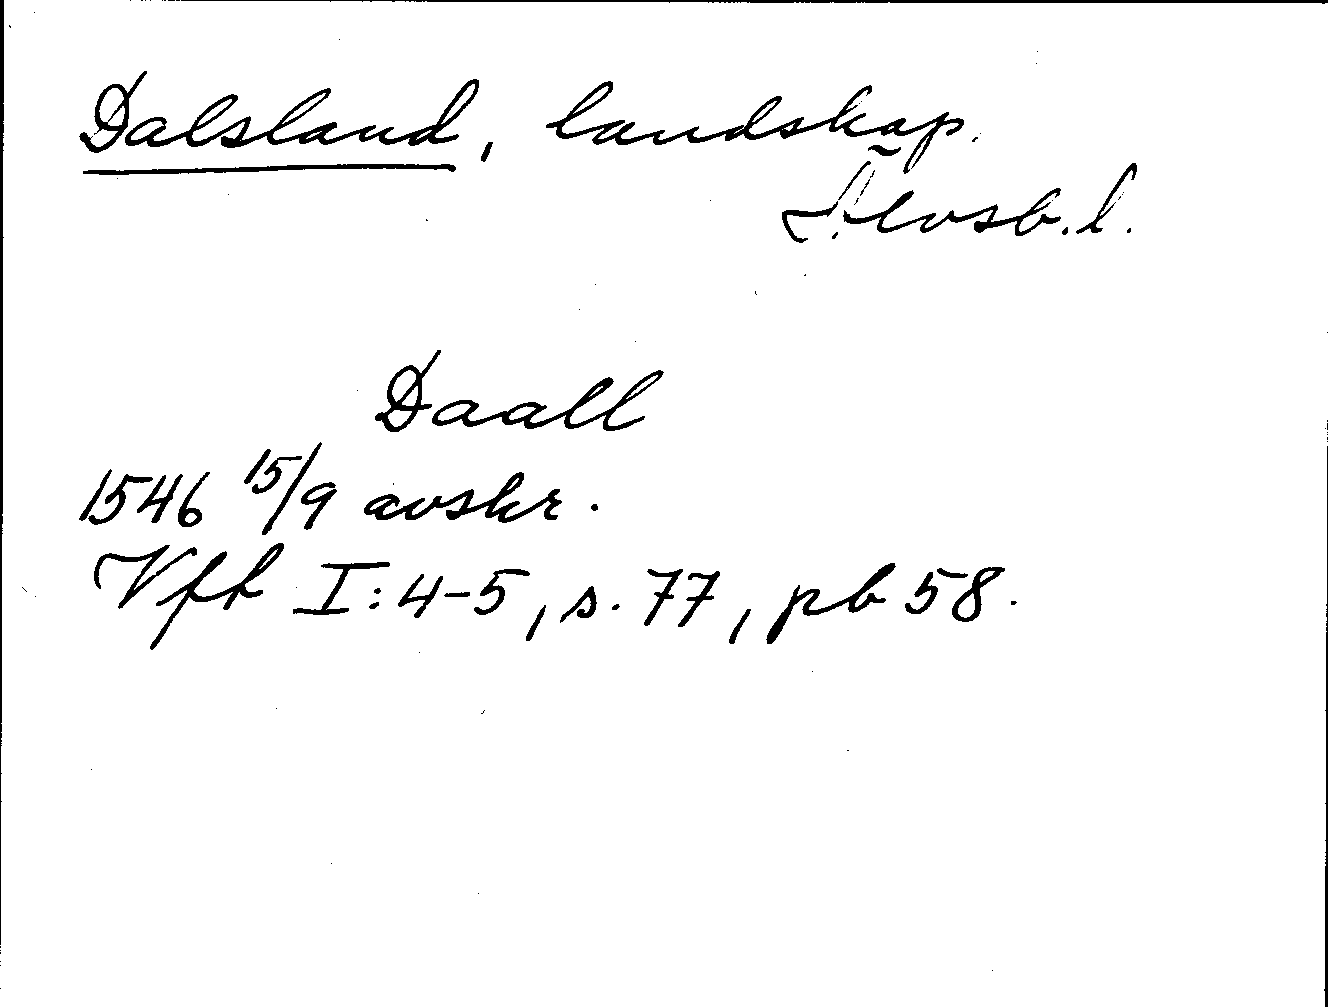 Dalsland, landskap.
Älvsb. l.
Daall
1546 15/9 avskr.
Vfk I:4-5, s. 77, pb 58.